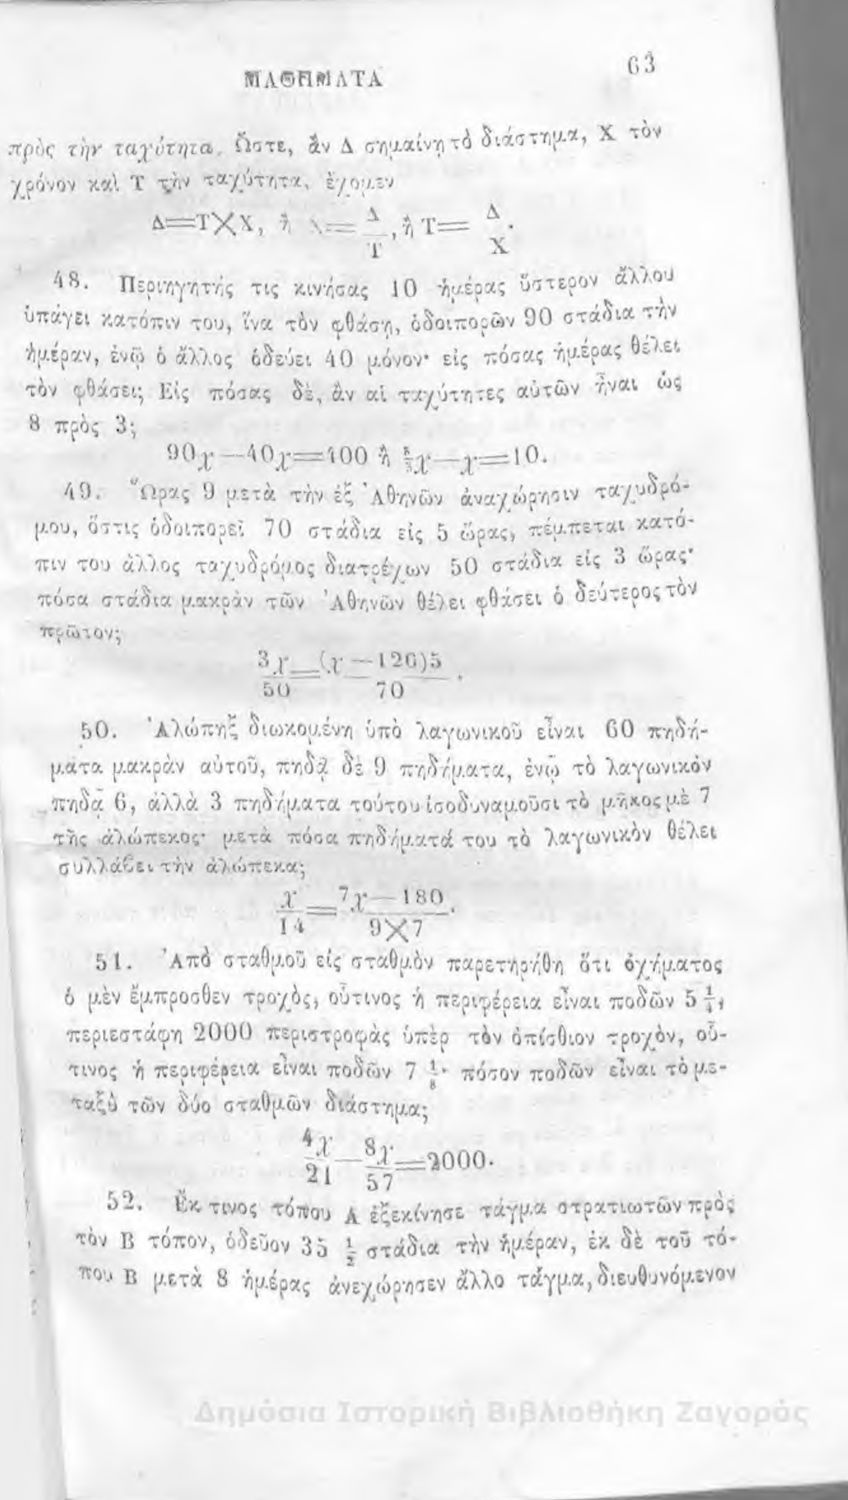 ΜΑΘΗΜΑΤΑ 63
πρὸς τὴν ταχύτητα. Ὥστε, ἂν Δ σημαίνῃ τὸ διάστημα, Χ τὸν
χρόνον καὶ Τ τὴν ταχύτητα, ἔχομεν
Δ=Τ×Χ, ἢ Χ= Δ/Τ, ἢ Τ= Δ/Χ.
48. Περιηγητής τις κινήσας 10 ἡμέρας ὕστερον ἄλλου
ὑπάγει κατόπιν του, ἵνα τὸν φθάσῃ, ὁδοιπορῶν 90 στάδια τὴν
ἡμέραν, ἐνῷ ὁ ἄλλος ὁδεύει 40 μόνον· εἰς πόσας ἡμέρας θέλει
τὸν φθάσει; Εἰς πόσας δὲ, ἂν αἱ ταχύτητες αὐτῶν ἦναι ὡς
8 πρὸς 3;
90χ—40χ=400 ἢ 8/3χ—χ=10.
49. Ὥρας 9 μετὰ τὴν ἐξ Ἀθηνῶν ἀναχώρησιν ταχυδρό-
μου, ὅστις ὁδοιπορεῖ 70 στάδια εἰς 5 ὥρας, πέμπεται κατό-
πιν του ἄλλος ταχυδρόμος διατρέχων 50 στάδια εἰς 3 ὥρας·
πόσα στάδια μακρὰν τῶν Ἀθηνῶν θέλει φθάσει ὁ δεύτερος τὸν
πρῶτον;
3χ/50=(χ—126)5/70.
50. Ἀλώπηξ διωκομένη ὑπὸ λαγωνικοῦ εἶναι 60 πηδή-
ματα μακρὰν αὐτοῦ, πηδᾷ δὲ 9 πηδήματα, ἐνῷ τὸ λαγωνικὸν
πηδᾷ 6, ἀλλὰ 3 πηδήματα τούτου ἰσοδυναμοῦσι τὸ μῆκος μὲ 7
τῆς ἀλώπεκος· μετὰ πόσα πηδήματά του τὸ λαγωνικὸν θέλει
συλλάβει τὴν ἀλώπεκα;
χ/14=7χ—180/9×7.
51. Ἀπὸ σταθμοῦ εἰς σταθμὸν παρετηρήθη ὅτι ὀχήματος
ὁ μὲν ἔμπροσθεν τροχὸς, οὗτινος ἡ περιφέρεια εἶναι ποδῶν 5 1/4,
περιεστάφη 2000 περιστροφὰς ὑπὲρ τὸν ὀπίσθιον τροχὸν, οὗ-
τινος ἡ περιφέρεια εἶναι ποδῶν 7 1/8· πόσον ποδῶν εἶναι τὸ με-
ταξὺ τῶν δύο σταθμῶν διάστημα;
4χ/21—8χ/57=2000.
52. Ἔκ τινος τόπου Α ἐξεκίνησε τάγμα στρατιωτῶν πρὸς
τὸν Β τόπον, ὁδεῦον 35 1/2 στάδια τὴν ἡμέραν, ἐκ δὲ τοῦ τό-
που Β μετὰ 8 ἡμέρας ἀνεχώρησεν ἄλλο τάγμα, διευθυνόμενον
Δημόσια Ιστορική Βιβλιοθήκη Ζαγοράς